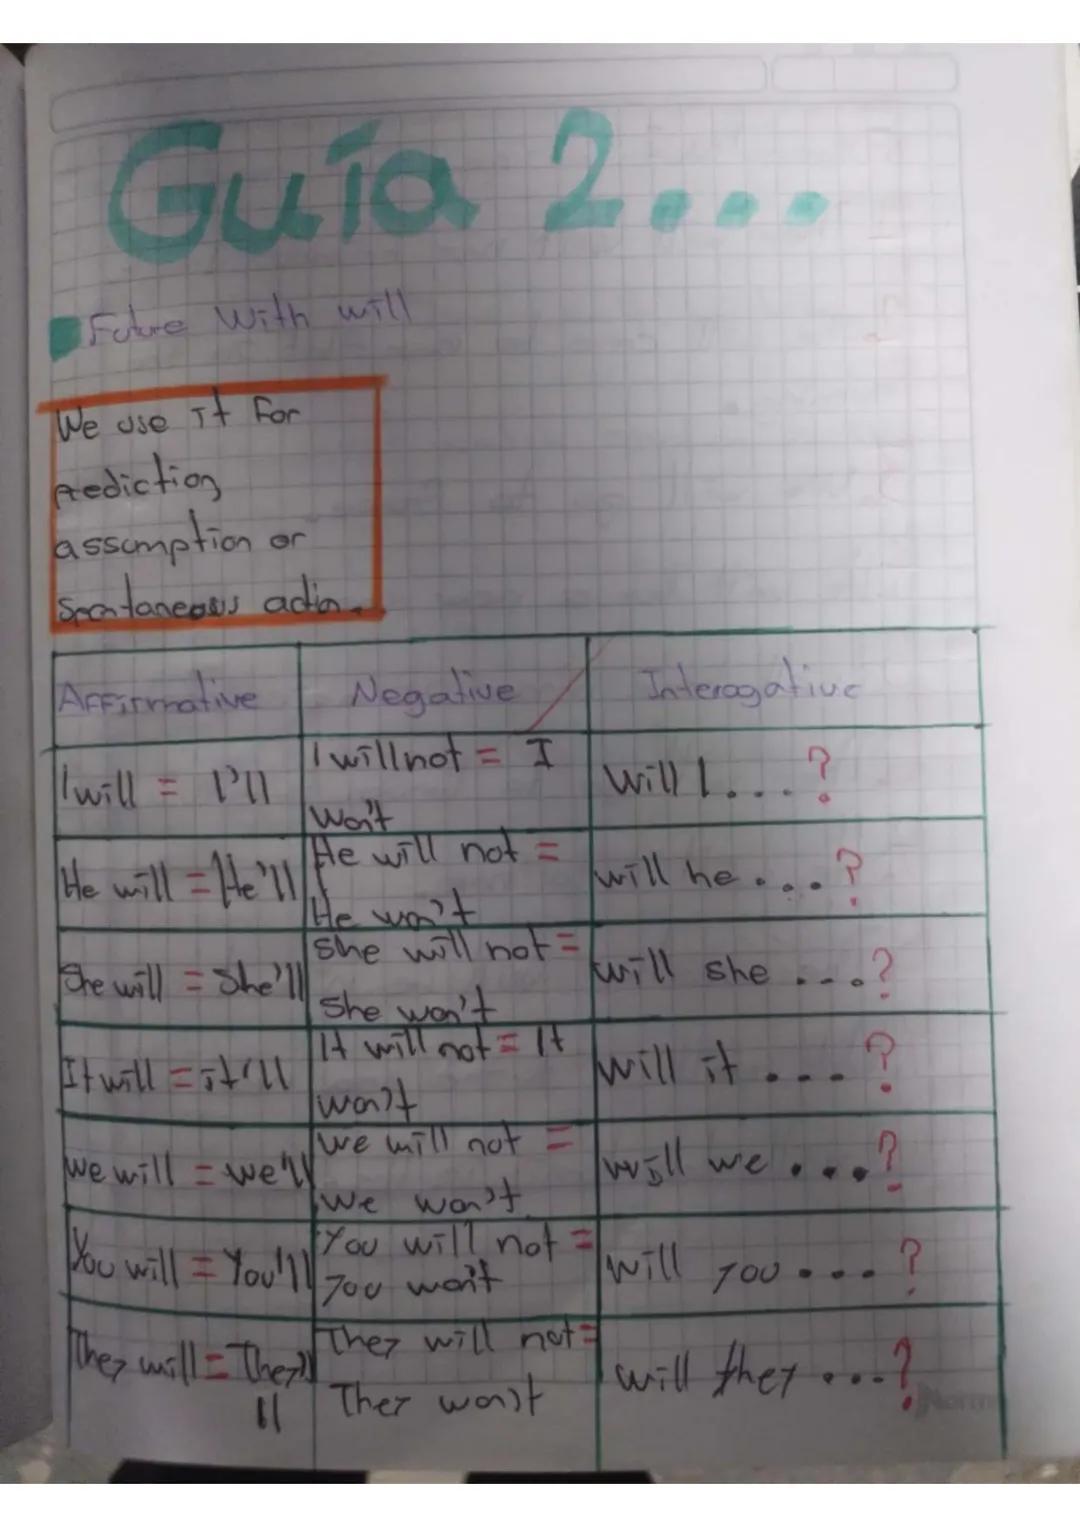 Guía 2...
Future With will
We use it for
Prediction
assumption or
Spontaneous action.
Affirmative Negative Interogative
I will = I'll
I will not = I
won't
Will I....?
He will = He'll
He will not =
He won't
will he ....?
She will = She'll
she will not =
she won't
will she ....?
It will = it'll
It will not = It
won't
will it ....?
we will = we'll
we will not =
we won't
will we ....?
You will = You'll
You will not =
you won't
will you ....?
They will = They'll
ll
They will not =
They won't
will they ....?
Norma